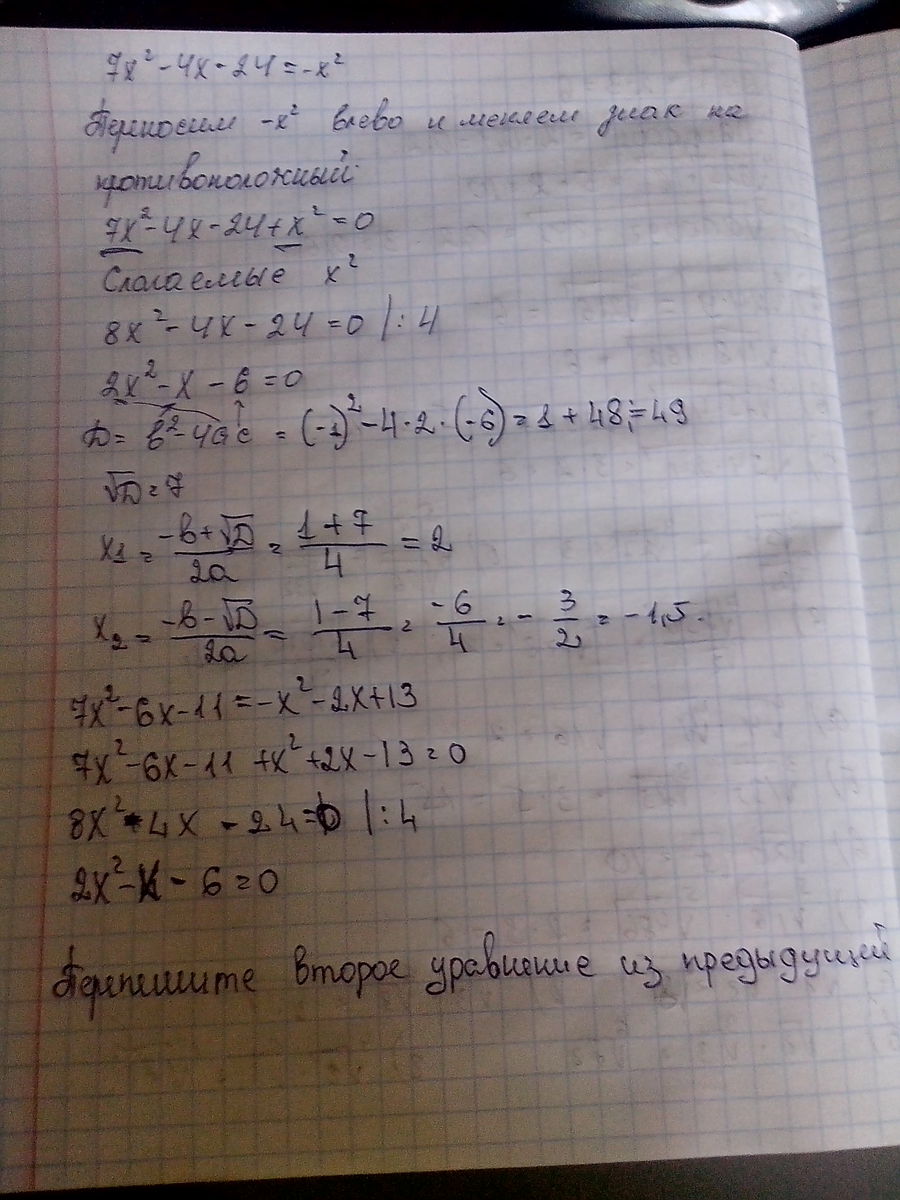 7x² - 4x - 24 = -x²
Переносим -x² влево и меняем знак на
противоположный.
7x² - 4x - 24 + x² = 0
Слагаемые x²
8x² - 4x - 24 = 0 | : 4
2x² - x - 6 = 0
D = b² - 4ac = (-1)² - 4·2·(-6) = 1 + 48 = 49
√D = 7
x₁ = (-b+√D)/(2a) = (1+7)/4 = 2
x₂ = (-b-√D)/(2a) = (1-7)/4 = -6/4 = -3/2 = -1,5.
7x² - 6x - 11 = -x² - 2x + 13
7x² - 6x - 11 + x² + 2x - 13 = 0
8x² - 4x - 24 = 0 | : 4
2x² - x - 6 = 0
Перепишите второе уравнение из предыдущей